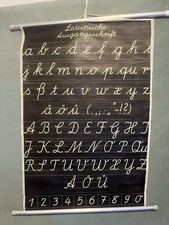 Lateinische
Ausgangsschrift
a b c d e f g h i
j k l m n o p q u r
s ß t u v w x y z
ä ö ü (.,:;„"-!?)
A B C D E F G H I
J K L M N O P Qu
R S T U V W X Y Z
Ä Ö Ü
1 2 3 4 5 6 7 8 9 0